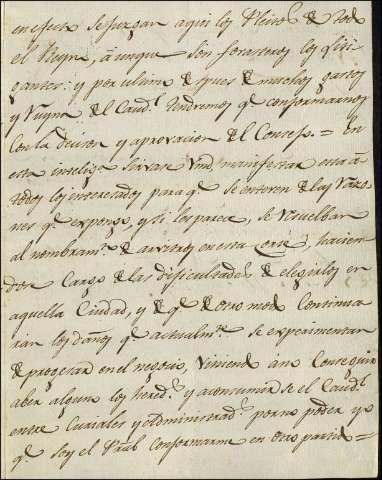 en efecto se juzgan aqui los Pleitos de todo
el Reyno, aunque sean forasteros los liti
gantes: y por ultimo despues de muchos gastos
y Ruyna del Caudl. tendremos qe conformarnos
con la decision y aprovacion del Consejo = en
esta inteliga. sirvase Vmd. manifestar esta a
todos los interesados para qe se enteren de las razo
nes qe expongo, y si les parece, se resuelban
al nombramto. de arvitros en esta Corte, hacien
dose cargo de las dificultades de elegirlos en
aquella Ciudad, y de qe de otro modo continua
ran los daños qe actualmte. se experimentan
de prozeder en el negocio, viniendo a no conseguir
aber alguno los hereds. y a consumirse el Caudl.
entre Curiales y Administrads. por no poder yo
qe soy el Pral. conformarme en otro partido =